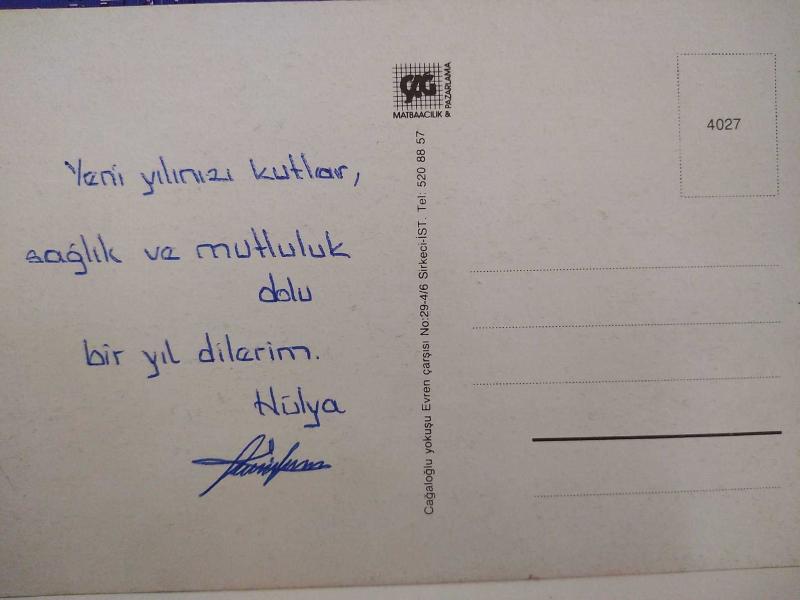 Yeni yılınızı kutlar,
sağlık ve mutluluk
dolu
bir yıl dilerim.
Hülya
ÇAĞ
MATBAACILIK & PAZARLAMA
Cağaloğlu yokuşu Evren çarşısı No:29-4/6 Sirkeci-İST. Tel: 520 88 57
4027